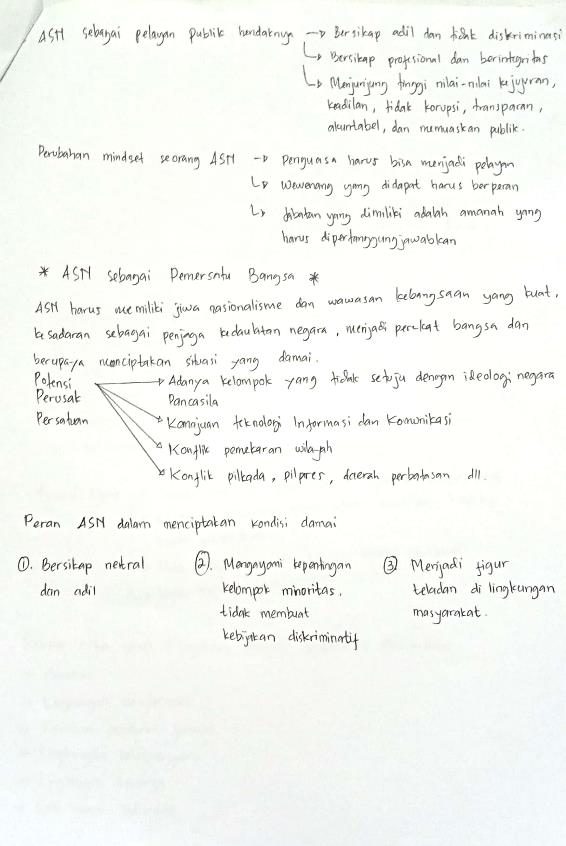 ASN sebagai pelayan publik hendaknya → Bersikap adil dan tidak diskriminasi
↳ Bersikap profesional dan berintegritas
↳ Menjunjung tinggi nilai-nilai kejujuran,
keadilan, tidak korupsi, transparan,
akuntabel, dan memuaskan publik.
Perubahan mindset seorang ASN → Penguasa harus bisa menjadi pelayan
↳ Wewenang yang didapat harus berperan
↳ Jabatan yang dimiliki adalah amanah yang
harus dipertanggungjawabkan
* ASN sebagai Pemersatu Bangsa *
ASN harus memiliki jiwa nasionalisme dan wawasan kebangsaan yang kuat,
kesadaran sebagai penjaga kedaulatan negara, menjadi perekat bangsa dan
berupaya menciptakan situasi yang damai.
Potensi Perusak Persatuan → Adanya kelompok yang tidak setuju dengan ideologi negara
Pancasila
→ Kemajuan teknologi Informasi dan Komunikasi
→ Konflik pemekaran wilayah
→ Konflik pilkada, pilpres, daerah perbatasan dll.
Peran ASN dalam menciptakan kondisi damai
①. Bersikap netral
dan adil
②. Mengayomi kepentingan
kelompok minoritas,
tidak membuat
kebijakan diskriminatif
③ Menjadi figur
teladan di lingkungan
masyarakat.